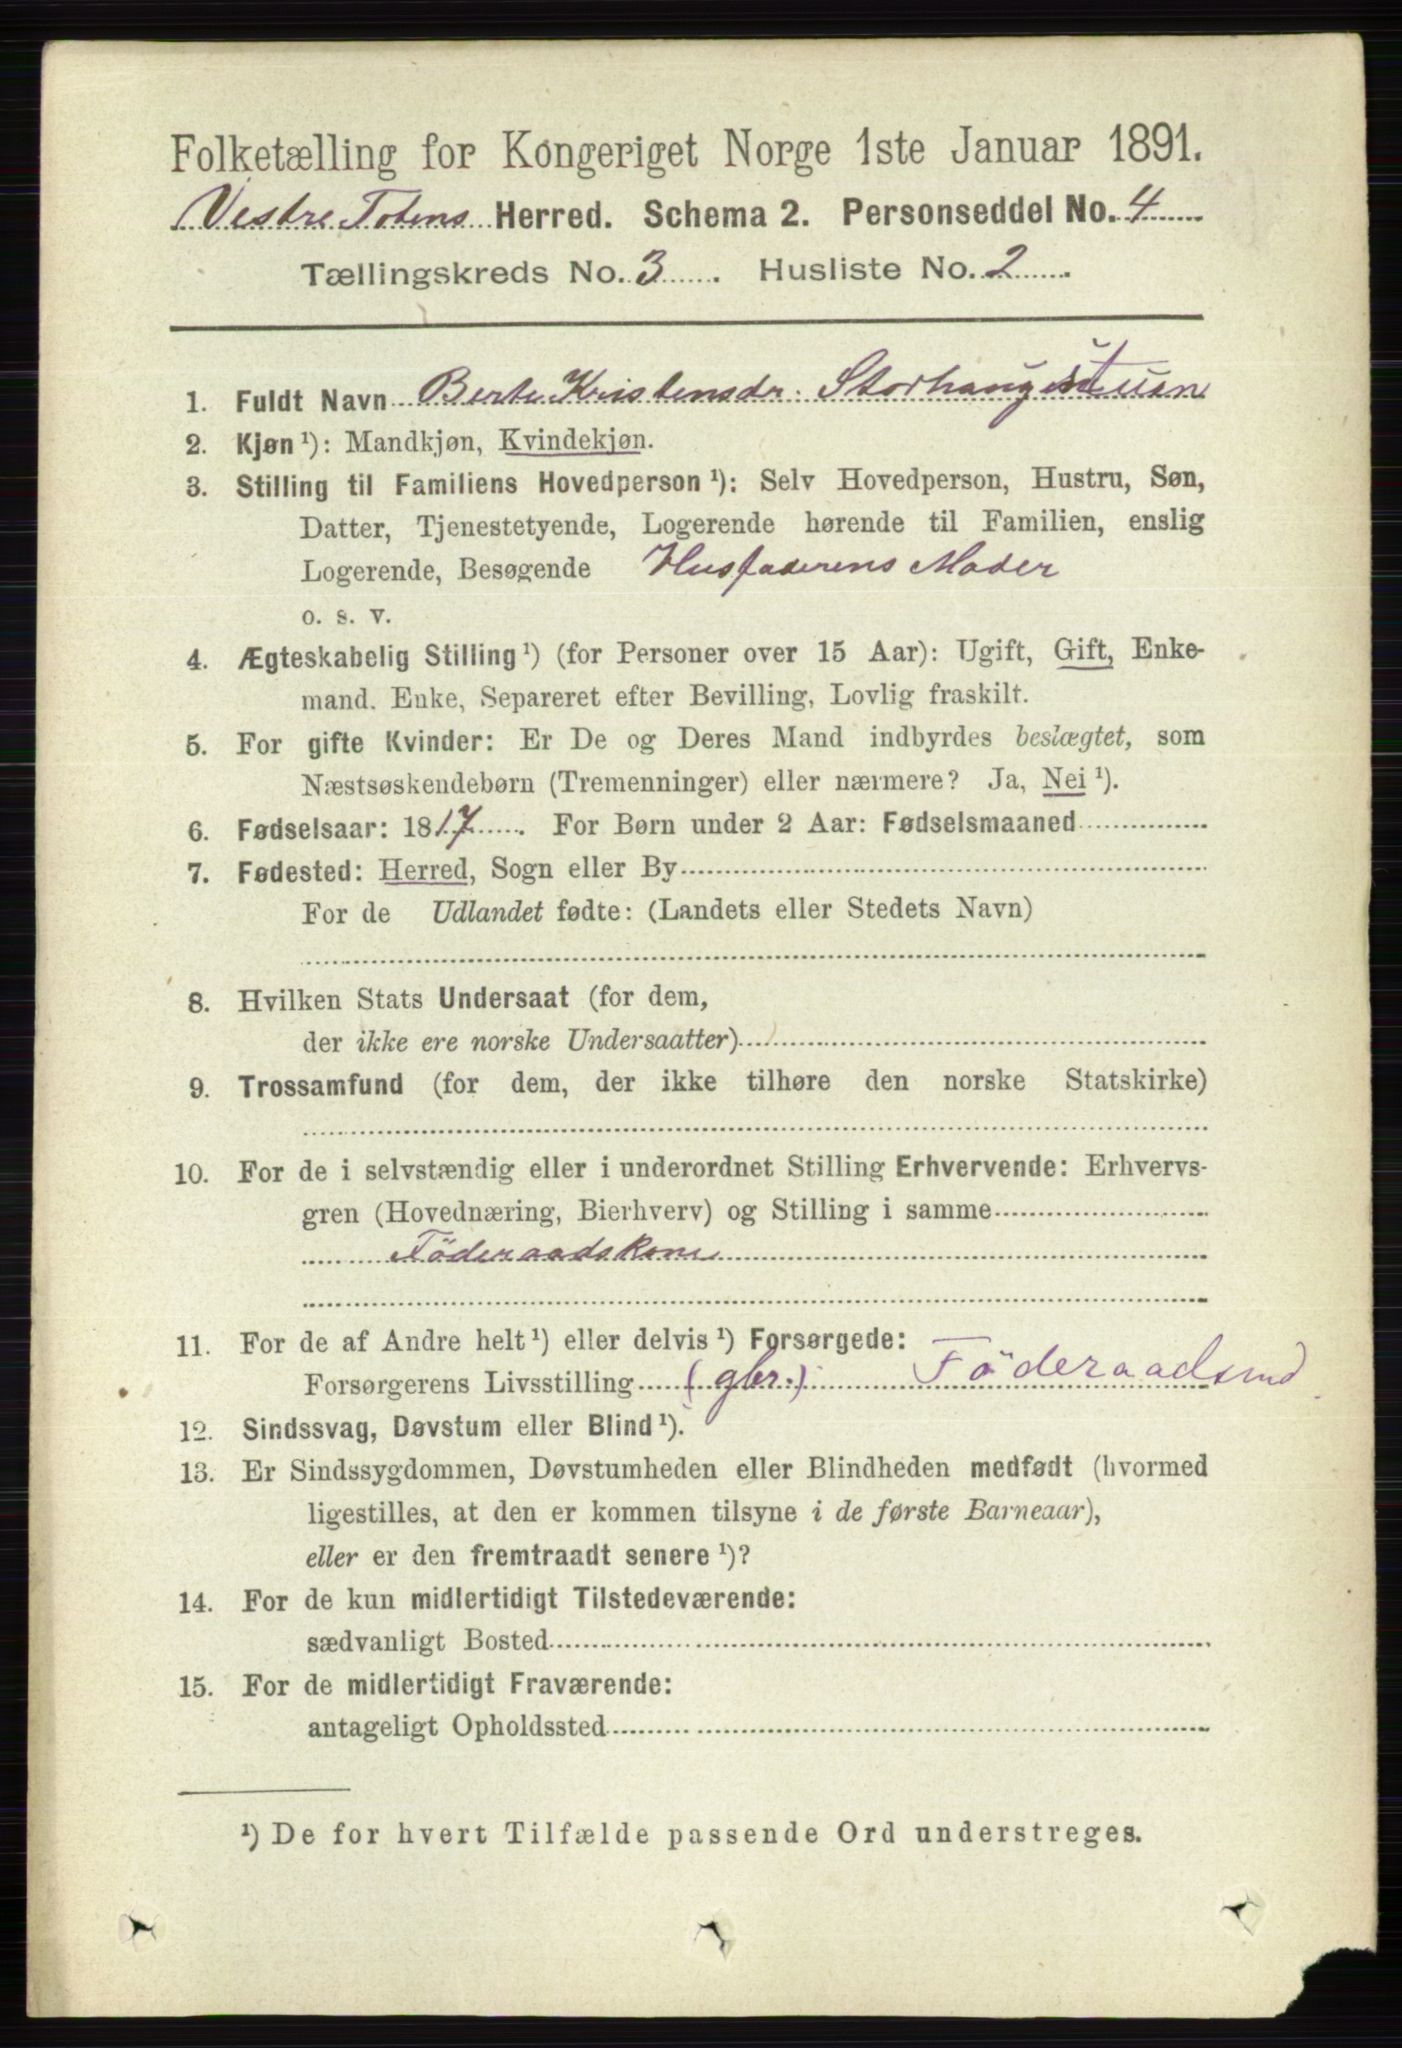 Folketælling for Kongeriget Norge 1ste Januar 1891.
Vestre Totens Herred. Schema 2. Personseddel No. 4
Tællingskreds No. 3. Husliste No. 2.
1. Fuldt Navn Berte Kristensdr. Storhaugstuen
2. Kjøn ¹): Mandkjøn, Kvindekjøn.
3. Stilling til Familiens Hovedperson ¹): Selv Hovedperson, Hustru, Søn,
Datter, Tjenestetyende, Logerende hørende til Familien, enslig
Logerende, Besøgende Husfaderens Moder
o. s. v.
4. Ægteskabelig Stilling ¹) (for Personer over 15 Aar): Ugift, Gift, Enke-
mand. Enke, Separeret efter Bevilling, Lovlig fraskilt.
5. For gifte Kvinder: Er De og Deres Mand indbyrdes beslægtet, som
Næstsøskendebørn (Tremenninger) eller nærmere? Ja, Nei ¹).
6. Fødselsaar: 1817. For Børn under 2 Aar: Fødselsmaaned
7. Fødested: Herred, Sogn eller By
For de Udlandet fødte: (Landets eller Stedets Navn)
8. Hvilken Stats Undersaat (for dem,
der ikke ere norske Undersaatter)
9. Trossamfund (for dem, der ikke tilhøre den norske Statskirke)
10. For de i selvstændig eller i underordnet Stilling Erhvervende: Erhvervs-
gren (Hovednæring, Bierhverv) og Stilling i samme
Föderaadskone
11. For de af Andre helt ¹) eller delvis ¹) Forsørgede:
Forsørgerens Livsstilling (gbr.) Föderaadsmd
12. Sindssvag, Døvstum eller Blind ¹).
13. Er Sindssygdommen, Døvstumheden eller Blindheden medfødt (hvormed
ligestilles, at den er kommen tilsyne i de første Barneaar),
eller er den fremtraadt senere ¹)?
14. For de kun midlertidigt Tilstedeværende:
sædvanligt Bosted
15. For de midlertidigt Fraværende:
antageligt Opholdssted
¹) De for hvert Tilfælde passende Ord understreges.